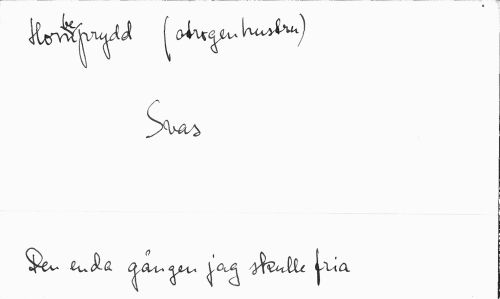 Hornbeprydd (otrogen hustru)
Svas
Den enda gången jag skulle fria